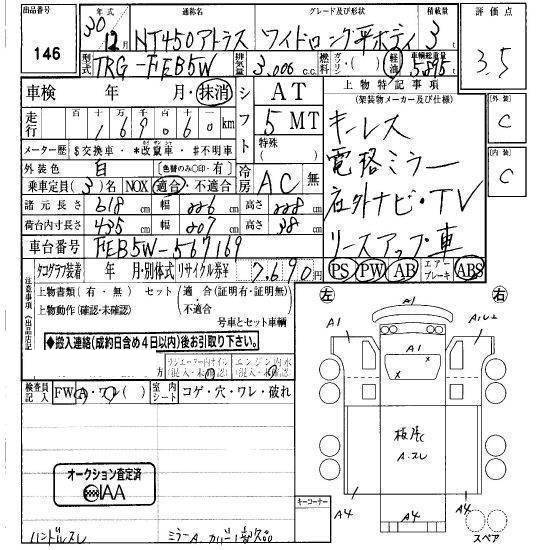 出品番号
146
年式
30年12月
通称名
NT450アトラス
グレード及び形状
ワイドロング平ボディ
積載量
3t
評価点
3.5
型式
TRG-FEB5W
排気量
3,000 c.c.
燃料
ガソリン・( )
軽油
車輌総重量
5895
車検 年 月・抹消
シフト
AT
5 MT
特殊
( )
上物特記事項
(架装物メーカー及び仕様)
走行
百 十 万 千 百 十
169060 km
キーレス
電格ミラー
社外ナビ・TV
リースアップ車
[外装]
C
[内装]
C
メーター歴 $交換車・*改竄車・#不明車
外装色 白 [色替のみ○印・有]
冷房
AC 無
乗車定員 (3)名 NOX 適合・不適合
諸元長さ 618 cm 幅 226 cm 高さ 228 cm
荷台内寸長さ 435 cm 幅 207 cm 高さ 38 cm
車台番号 FEB5W-567169
PS PW AB エアーブレーキ ABS
注意事項(出品店記入)
タコグラフ装着 年 月・別体式 リサイクル券¥ 7,690円
上物書類(有・無) セット(適合(証明有・証明無)
上物動作(確認・未確認) ・不適合
号車とセット車輌
◆搬入連絡(成約日含め4日以内)後お引取り下さい。
検査員記入
FW(A・ワレ( )
室内シート
コゲ・穴・ワレ・破れ
オークション査定済
IAA
ハンドルスレ
ミラーA
キーコーナー
左
右
A1
A1
A1
A4
A4
A4
A.スレ
スペア